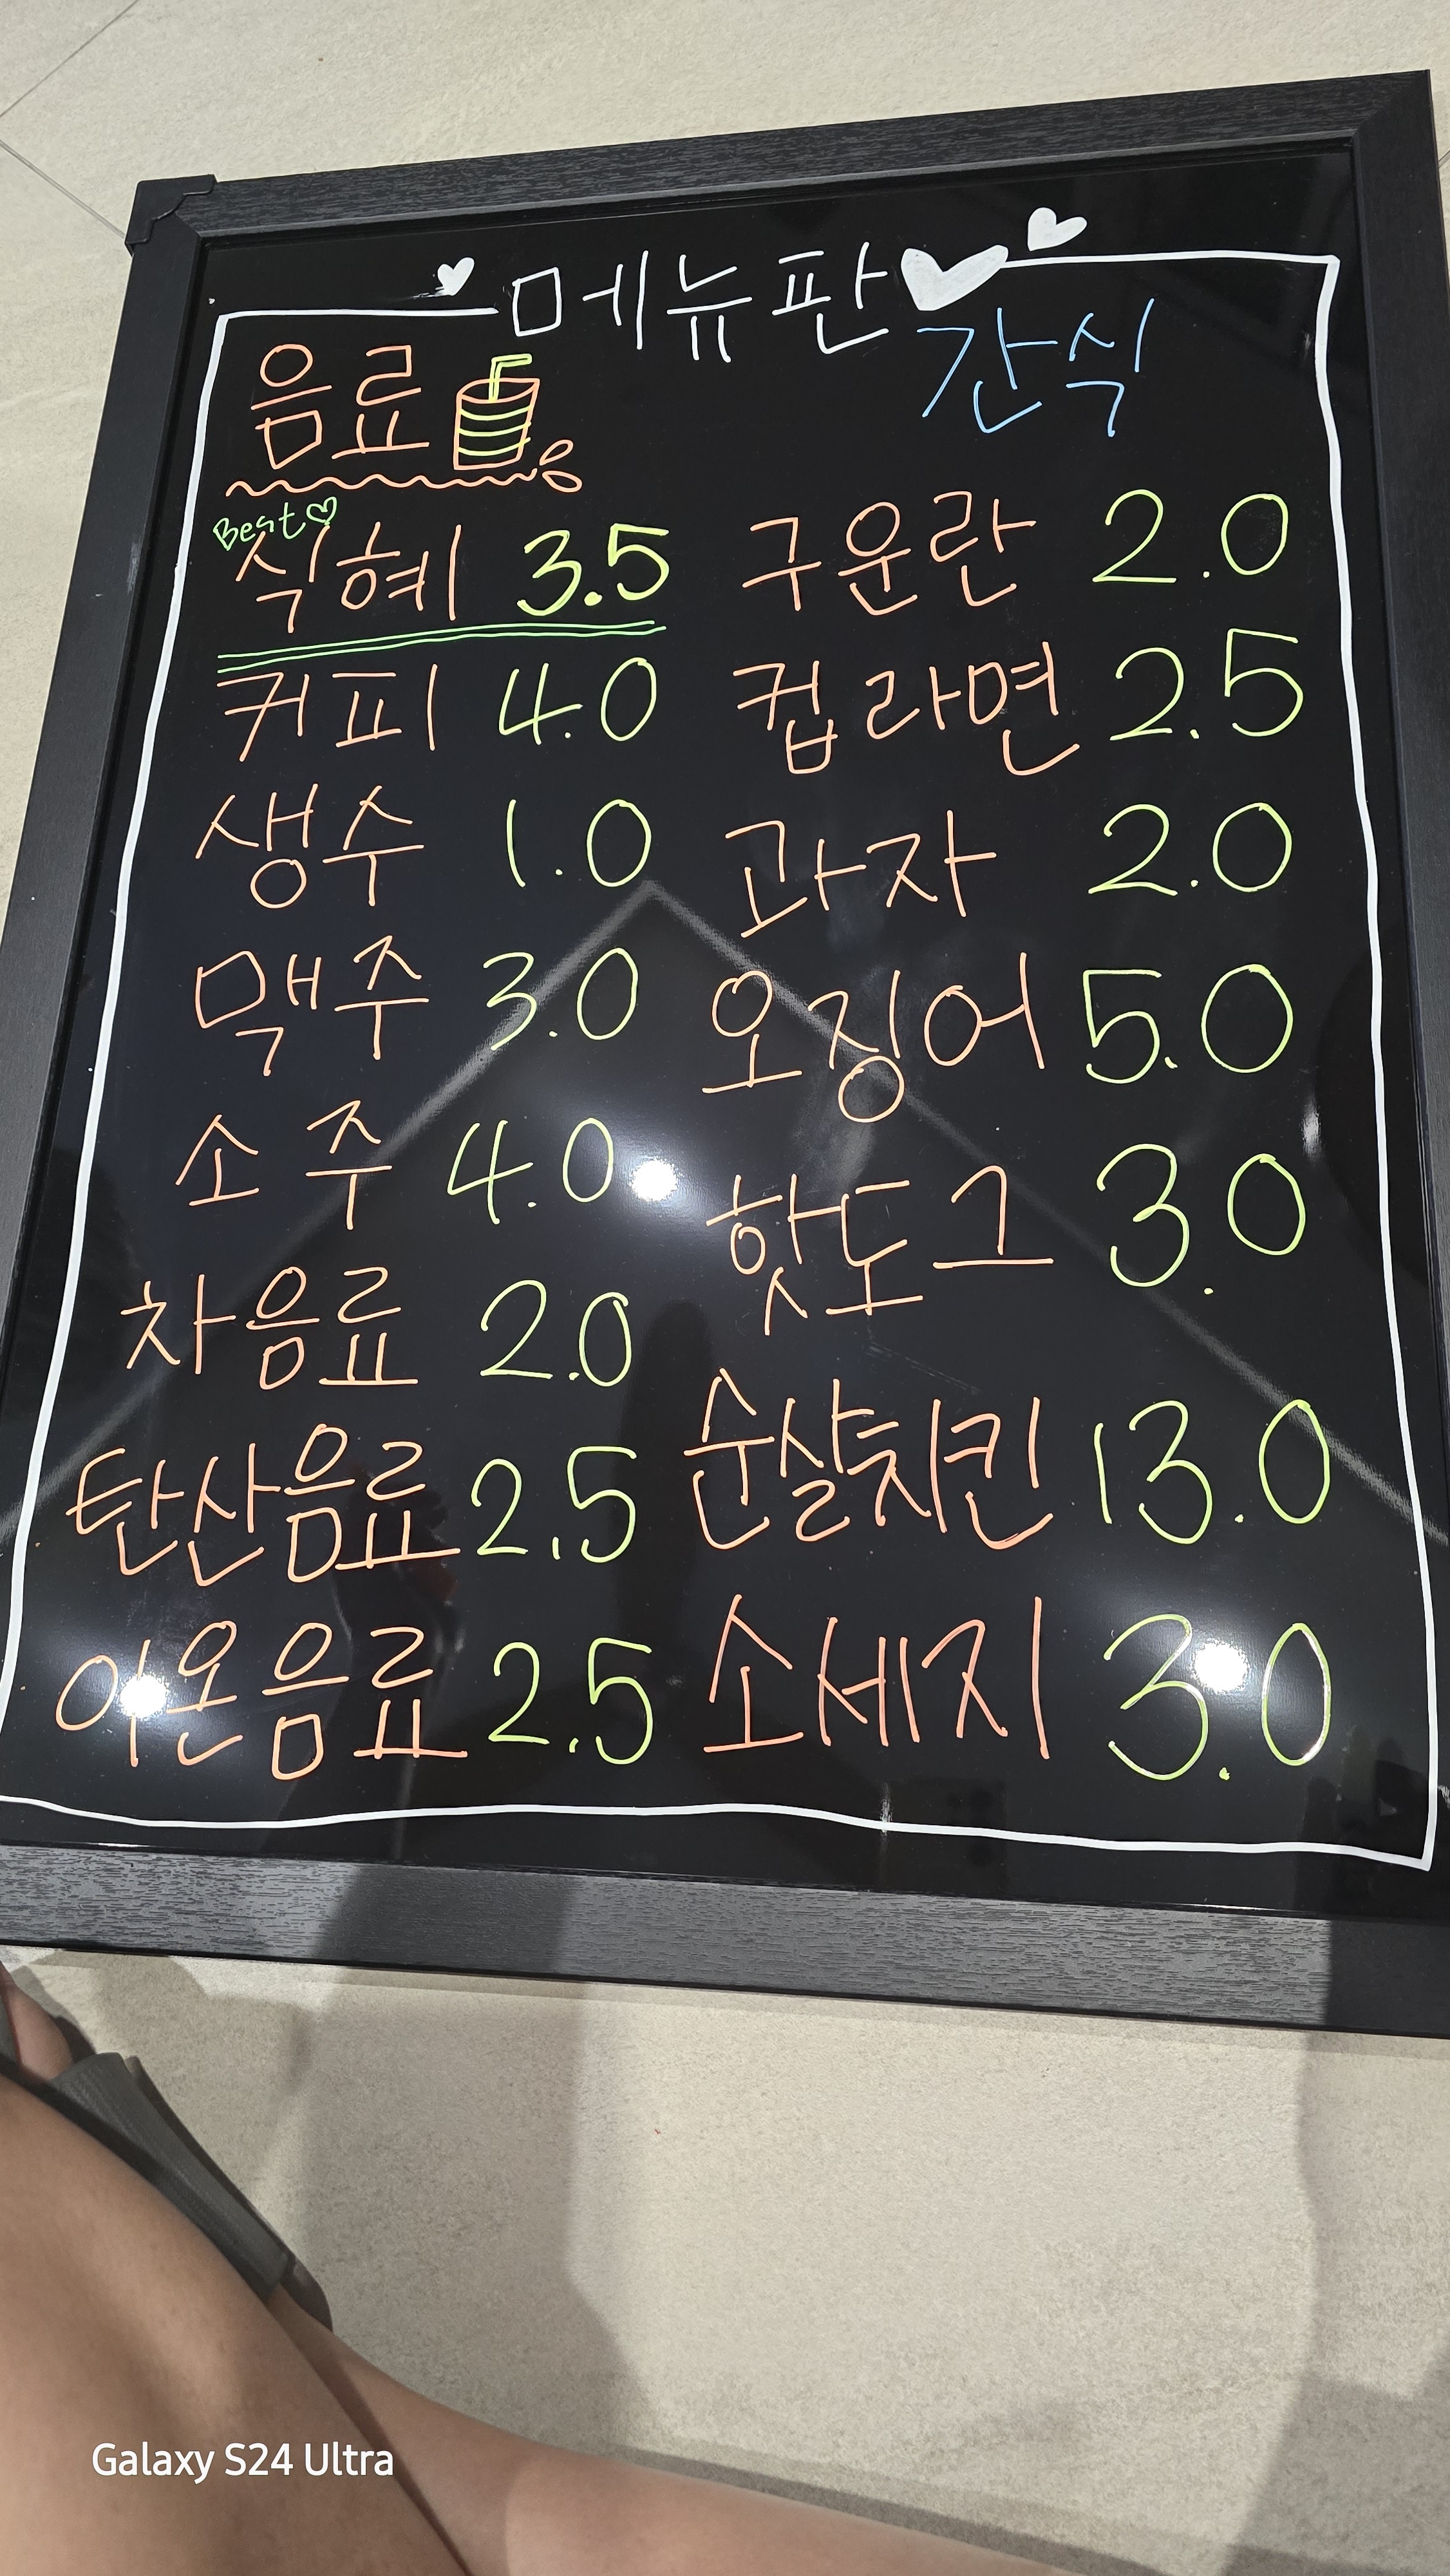 메뉴판
음료
Best♡
식혜 3.5
커피 4.0
생수 1.0
맥주 3.0
소주 4.0
차음료 2.0
탄산음료 2.5
이온음료 2.5
간식
구운란 2.0
컵라면 2.5
과자 2.0
오징어 5.0
핫도그 3.0
순살치킨 13.0
소세지 3.0
Galaxy S24 Ultra